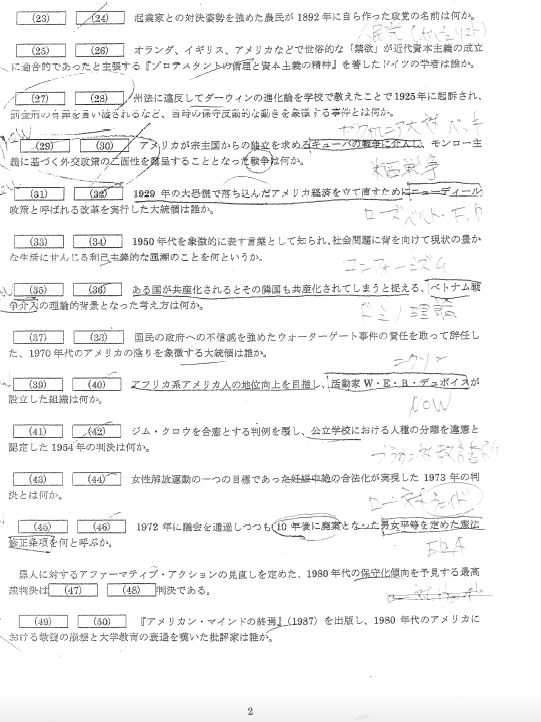 (23) (24) 起業家との対決姿勢を強めた農民が 1892 年に自ら作った政党の名前は何か。
人民党(ポピュリスト)
(25) (26) オランダ、イギリス、アメリカなどで世俗的な「禁欲」が近代資本主義の成立
に適合的であったと主張する『プロテスタントの倫理と資本主義の精神』を著したドイツの学者は誰か。
(27) (28) 州法に違反してダーウィンの進化論を学校で教えたことで 1925 年に起訴され、
罰金刑の有罪を言い渡されるなど、当時の保守反動的な動きを象徴する事件とは何か。
(29) (30) アメリカが宗主国からの独立を求めるキューバの戦争に介入し、モンロー主
義に基づく外交政策の二面性を露呈することとなった戦争は何か。
米西戦争
(31) (32) 1929 年の大恐慌で落ち込んだアメリカ経済を立て直すためにニューディール
政策と呼ばれる改革を実行した大統領は誰か。
ローズベルト・F.D
(33) (34) 1950 年代を象徴的に表す言葉として知られ、社会問題に背を向けて現状の豊か
な生活に甘んじる利己主義的な風潮のことを何というか。
コンフォーミズム
(35) (36) ある国が共産化されるとその隣国も共産化されてしまうと捉える、ベトナム戦
争介入の理論的背景となった考え方は何か。
ドミノ理論
(37) (38) 国民の政府への不信感を強めたウォーターゲート事件の責任を取って辞任し
た、1970 年代のアメリカの陰りを象徴する大統領は誰か。
ニクソン
(39) (40) アフリカ系アメリカ人の地位向上を目指し、活動家 W・E・B・デュボイスが
設立した組織は何か。
NOW
(41) (42) ジム・クロウを合憲とする判例を覆し、公立学校における人種の分離を違憲と
認定した 1954 年の判決は何か。
ブラウン対教育委員会
(43) (44) 女性解放運動の一つの目標であった妊娠中絶の合法化が実現した 1973 年の判
決とは何か。
ロー対ウェイド
(45) (46) 1972 年に議会を通過しつつも 10 年後に廃案となった男女平等を定めた憲法
修正条項を何と呼ぶか。
ERA
黒人に対するアファーマティブ・アクションの見直しを定めた、1980 年代の保守化傾向を予見する最高
裁判決は (47) (48) 判決である。
(49) (50) 『アメリカン・マインドの終焉』(1987) を出版し、1980 年代のアメリカに
おける教養の崩壊と大学教育の衰退を嘆いた批評家は誰か。
2